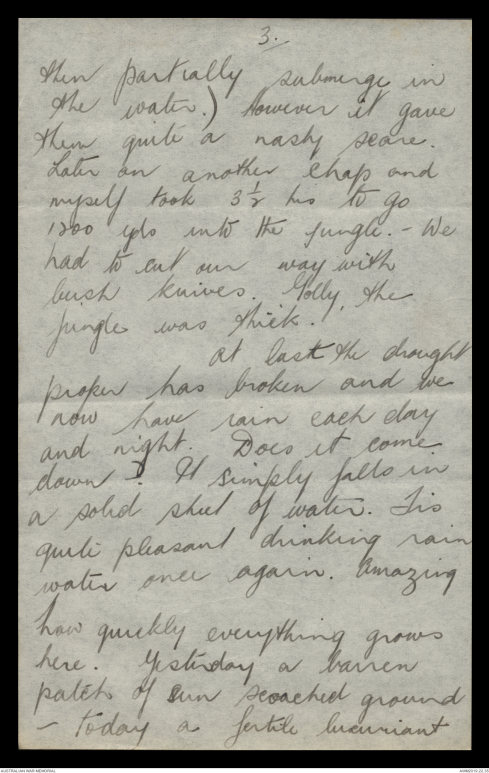 3.
then partially submerge in
the water.) However it gave
them quite a nasty scare.
Later on another chap and
myself took 3 1/2 hrs to go
1200 yds into the jungle. - We
had to cut our way with
bush knives. Golly, the
jungle was thick.
At last the drought
proper has broken and we
now have rain each day
and night. Does it come
down? It simply falls in
a solid sheet of water. Tis
quite pleasant drinking rain
water once again. Amazing
how quickly everything grows
here. Yesterday a barren
patch of sun scorched ground
- today a fertile luxuriant
AUSTRALIAN WAR MEMORIAL